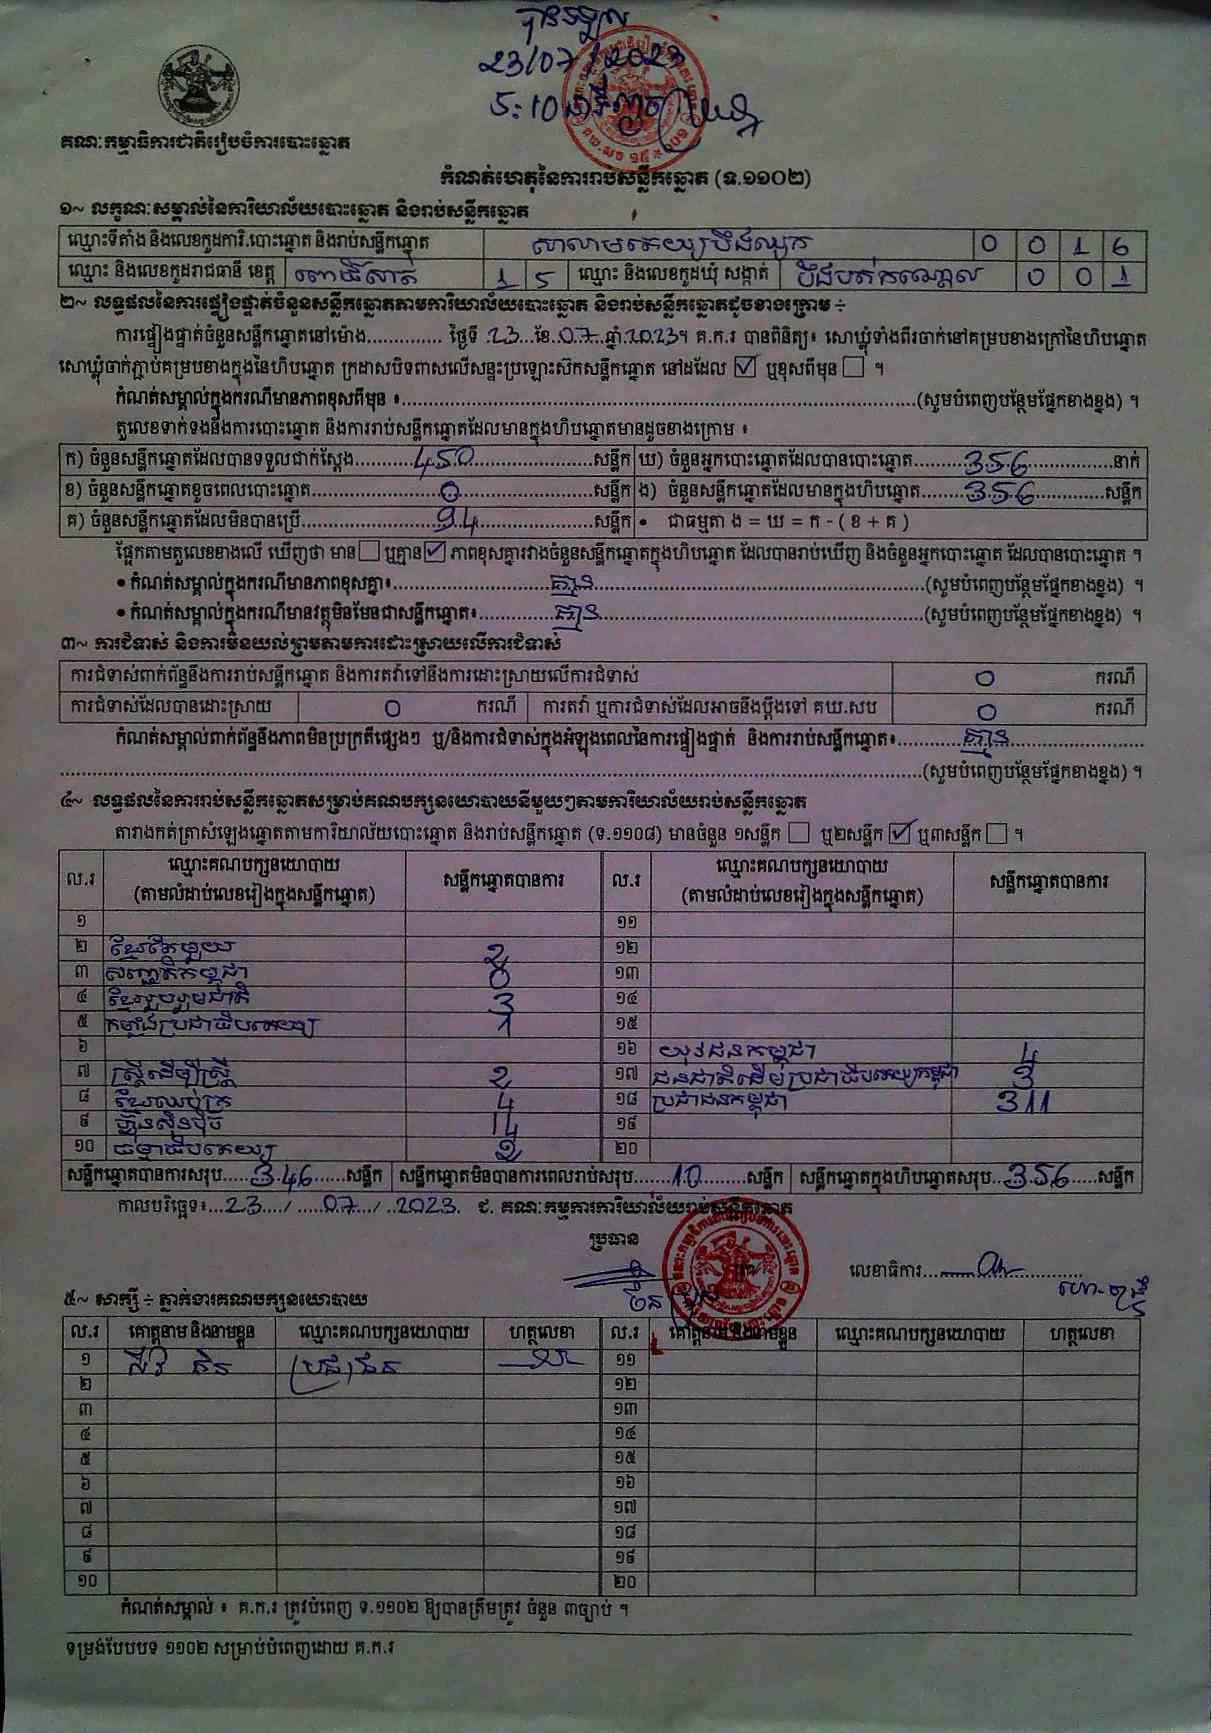 បានទទួល
23/07/2023
5:10 នាទីល្ងាច
គណៈកម្មាធិការជាតិរៀបចំការបោះឆ្នោត
កំណត់ហេតុនៃការរាប់សន្លឹកឆ្នោត (ទ.១១០២)
១~ លក្ខណៈសម្គាល់នៃការិយាល័យបោះឆ្នោត និងរាប់សន្លឹកឆ្នោត
ឈ្មោះទីតាំង និងលេខកូដការិ.បោះឆ្នោត និងរាប់សន្លឹកឆ្នោត 0 0 1 6
ឈ្មោះ និងលេខកូដរាជធានី ខេត្ត ពោធិ៍សាត់ 1 5 ឈ្មោះ និងលេខកូដឃុំ សង្កាត់ បឹងបត់កណ្ដោល 0 0 1
២~ លទ្ធផលនៃការផ្ទៀងផ្ទាត់ចំនួនសន្លឹកឆ្នោតតាមការិយាល័យបោះឆ្នោត និងរាប់សន្លឹកឆ្នោតដូចខាងក្រោម ÷
ការផ្ទៀងផ្ទាត់ចំនួនសន្លឹកឆ្នោតនៅម៉ោង.............. ថ្ងៃទី 23 ខែ 07 ឆ្នាំ 2023។ គ.ក.រ បានពិនិត្យ៖ សោឃ្លុំទាំងពីរចាក់នៅគម្របខាងក្រៅនៃហិបឆ្នោត
សោឃ្លុំចាក់ភ្ជាប់គម្របខាងក្នុងនៃហិបឆ្នោត ក្រដាសបិទពាសលើសន្ទះប្រឡោះស៊កសន្លឹកឆ្នោត នៅដដែល ☑ ឬខុសពីមុន ☐ ។
កំណត់សម្គាល់ក្នុងករណីមានភាពខុសពីមុន ៖..............(សូមបំពេញបន្ថែមផ្នែកខាងខ្នង) ។
តួលេខទាក់ទងនឹងការបោះឆ្នោត និងការរាប់សន្លឹកឆ្នោតដែលមានក្នុងហិបឆ្នោតមានដូចខាងក្រោម ៖
ក) ចំនួនសន្លឹកឆ្នោតដែលបានទទួលជាក់ស្តែង 450 សន្លឹក ឃ) ចំនួនអ្នកបោះឆ្នោតដែលបានបោះឆ្នោត 356 នាក់
ខ) ចំនួនសន្លឹកឆ្នោតខូចពេលបោះឆ្នោត 0 សន្លឹក ង) ចំនួនសន្លឹកឆ្នោតដែលមានក្នុងហិបឆ្នោត 356 សន្លឹក
គ) ចំនួនសន្លឹកឆ្នោតដែលមិនបានប្រើ 94 សន្លឹក • ជាធម្មតា ង = ឃ = ក - ( ខ + គ )
ផ្អែកតាមតួលេខខាងលើ ឃើញថា មាន ☐ ឬគ្មាន ☑ ភាពខុសគ្នារវាងចំនួនសន្លឹកឆ្នោតក្នុងហិបឆ្នោត ដែលបានរាប់ឃើញ និងចំនួនអ្នកបោះឆ្នោត ដែលបានបោះឆ្នោត ។
• កំណត់សម្គាល់ក្នុងករណីមានភាពខុសគ្នា៖ គ្មាន (សូមបំពេញបន្ថែមផ្នែកខាងខ្នង) ។
• កំណត់សម្គាល់ក្នុងករណីមានវត្ថុមិនមែនជាសន្លឹកឆ្នោត៖ គ្មាន (សូមបំពេញបន្ថែមផ្នែកខាងខ្នង) ។
៣~ ការជំទាស់ និងការមិនយល់ព្រមតាមការដោះស្រាយលើការជំទាស់
ការជំទាស់ពាក់ព័ន្ធនឹងការរាប់សន្លឹកឆ្នោត និងការតវ៉ាទៅនឹងការដោះស្រាយលើការជំទាស់ 0 ករណី
ការជំទាស់ដែលបានដោះស្រាយ 0 ករណី ការតវ៉ា ឬការជំទាស់ដែលអាចនឹងប្តឹងទៅ គឃ.សប 0 ករណី
កំណត់សម្គាល់ពាក់ព័ន្ធនឹងភាពមិនប្រក្រតីផ្សេងៗ ឬ/និងការជំទាស់ក្នុងអំឡុងពេលនៃការផ្ទៀងផ្ទាត់ និងការរាប់សន្លឹកឆ្នោត៖ គ្មាន
(សូមបំពេញបន្ថែមផ្នែកខាងខ្នង) ។
៤~ លទ្ធផលនៃការរាប់សន្លឹកឆ្នោតសម្រាប់គណបក្សនយោបាយនីមួយៗតាមការិយាល័យរាប់សន្លឹកឆ្នោត
តារាងកត់ត្រាសំឡេងឆ្នោតតាមការិយាល័យបោះឆ្នោត និងរាប់សន្លឹកឆ្នោត (ទ.១១០៨) មានចំនួន ១សន្លឹក ☐ ឬ២សន្លឹក ☑ ឬ៣សន្លឹក ☐ ។
ល.រ ឈ្មោះគណបក្សនយោបាយ (តាមលំដាប់លេខរៀងក្នុងសន្លឹកឆ្នោត) សន្លឹកឆ្នោតបានការ ល.រ ឈ្មោះគណបក្សនយោបាយ (តាមលំដាប់លេខរៀងក្នុងសន្លឹកឆ្នោត) សន្លឹកឆ្នោតបានការ
១ ១១
២ ខ្មែរតែមួយ 2 ១២
៣ សញ្ជាតិកម្ពុជា 0 ១៣
៤ ខ្មែររួបរួមជាតិ 3 ១៤
៥ កម្លាំងប្រជាធិបតេយ្យ 1 ១៥
៦ ១៦ យុវជនកម្ពុជា 4
៧ ស្ត្រីដើម្បីស្ត្រី 2 ១៧ ជនជាតិដើមប្រជាធិបតេយ្យកម្ពុជា 3
៨ ខ្មែរឈប់ក្រ 4 ១៨ ប្រជាជនកម្ពុជា 311
៩ ហ៊្វុនស៊ិនប៉ិច 14 ១៩
១០ ធម្មាធិបតេយ្យ 2 ២០
សន្លឹកឆ្នោតបានការសរុប 346 សន្លឹក សន្លឹកឆ្នោតមិនបានការពេលរាប់សរុប 10 សន្លឹក សន្លឹកឆ្នោតក្នុងហិបឆ្នោតសរុប 356 សន្លឹក
កាលបរិច្ឆេទ៖ 23 / 07 / 2023 ជ. គណៈកម្មការការិយាល័យរាប់សន្លឹកឆ្នោត
ប្រធាន
លេខាធិការ
៥~ សាក្សី ÷ ភ្នាក់ងារគណបក្សនយោបាយ
ល.រ គោត្តនាម និងនាមខ្លួន ឈ្មោះគណបក្សនយោបាយ ហត្ថលេខា ល.រ គោត្តនាម និងនាមខ្លួន ឈ្មោះគណបក្សនយោបាយ ហត្ថលេខា
១ ប្រជាជន ១១
២ ១២
៣ ១៣
៤ ១៤
៥ ១៥
៦ ១៦
៧ ១៧
៨ ១៨
៩ ១៩
១០ ២០
កំណត់សម្គាល់ ៖ គ.ក.រ ត្រូវបំពេញ ទ.១១០២ ឱ្យបានត្រឹមត្រូវ ចំនួន ៣ច្បាប់ ។
ទម្រង់បែបបទ ១១០២ សម្រាប់បំពេញដោយ គ.ក.រ